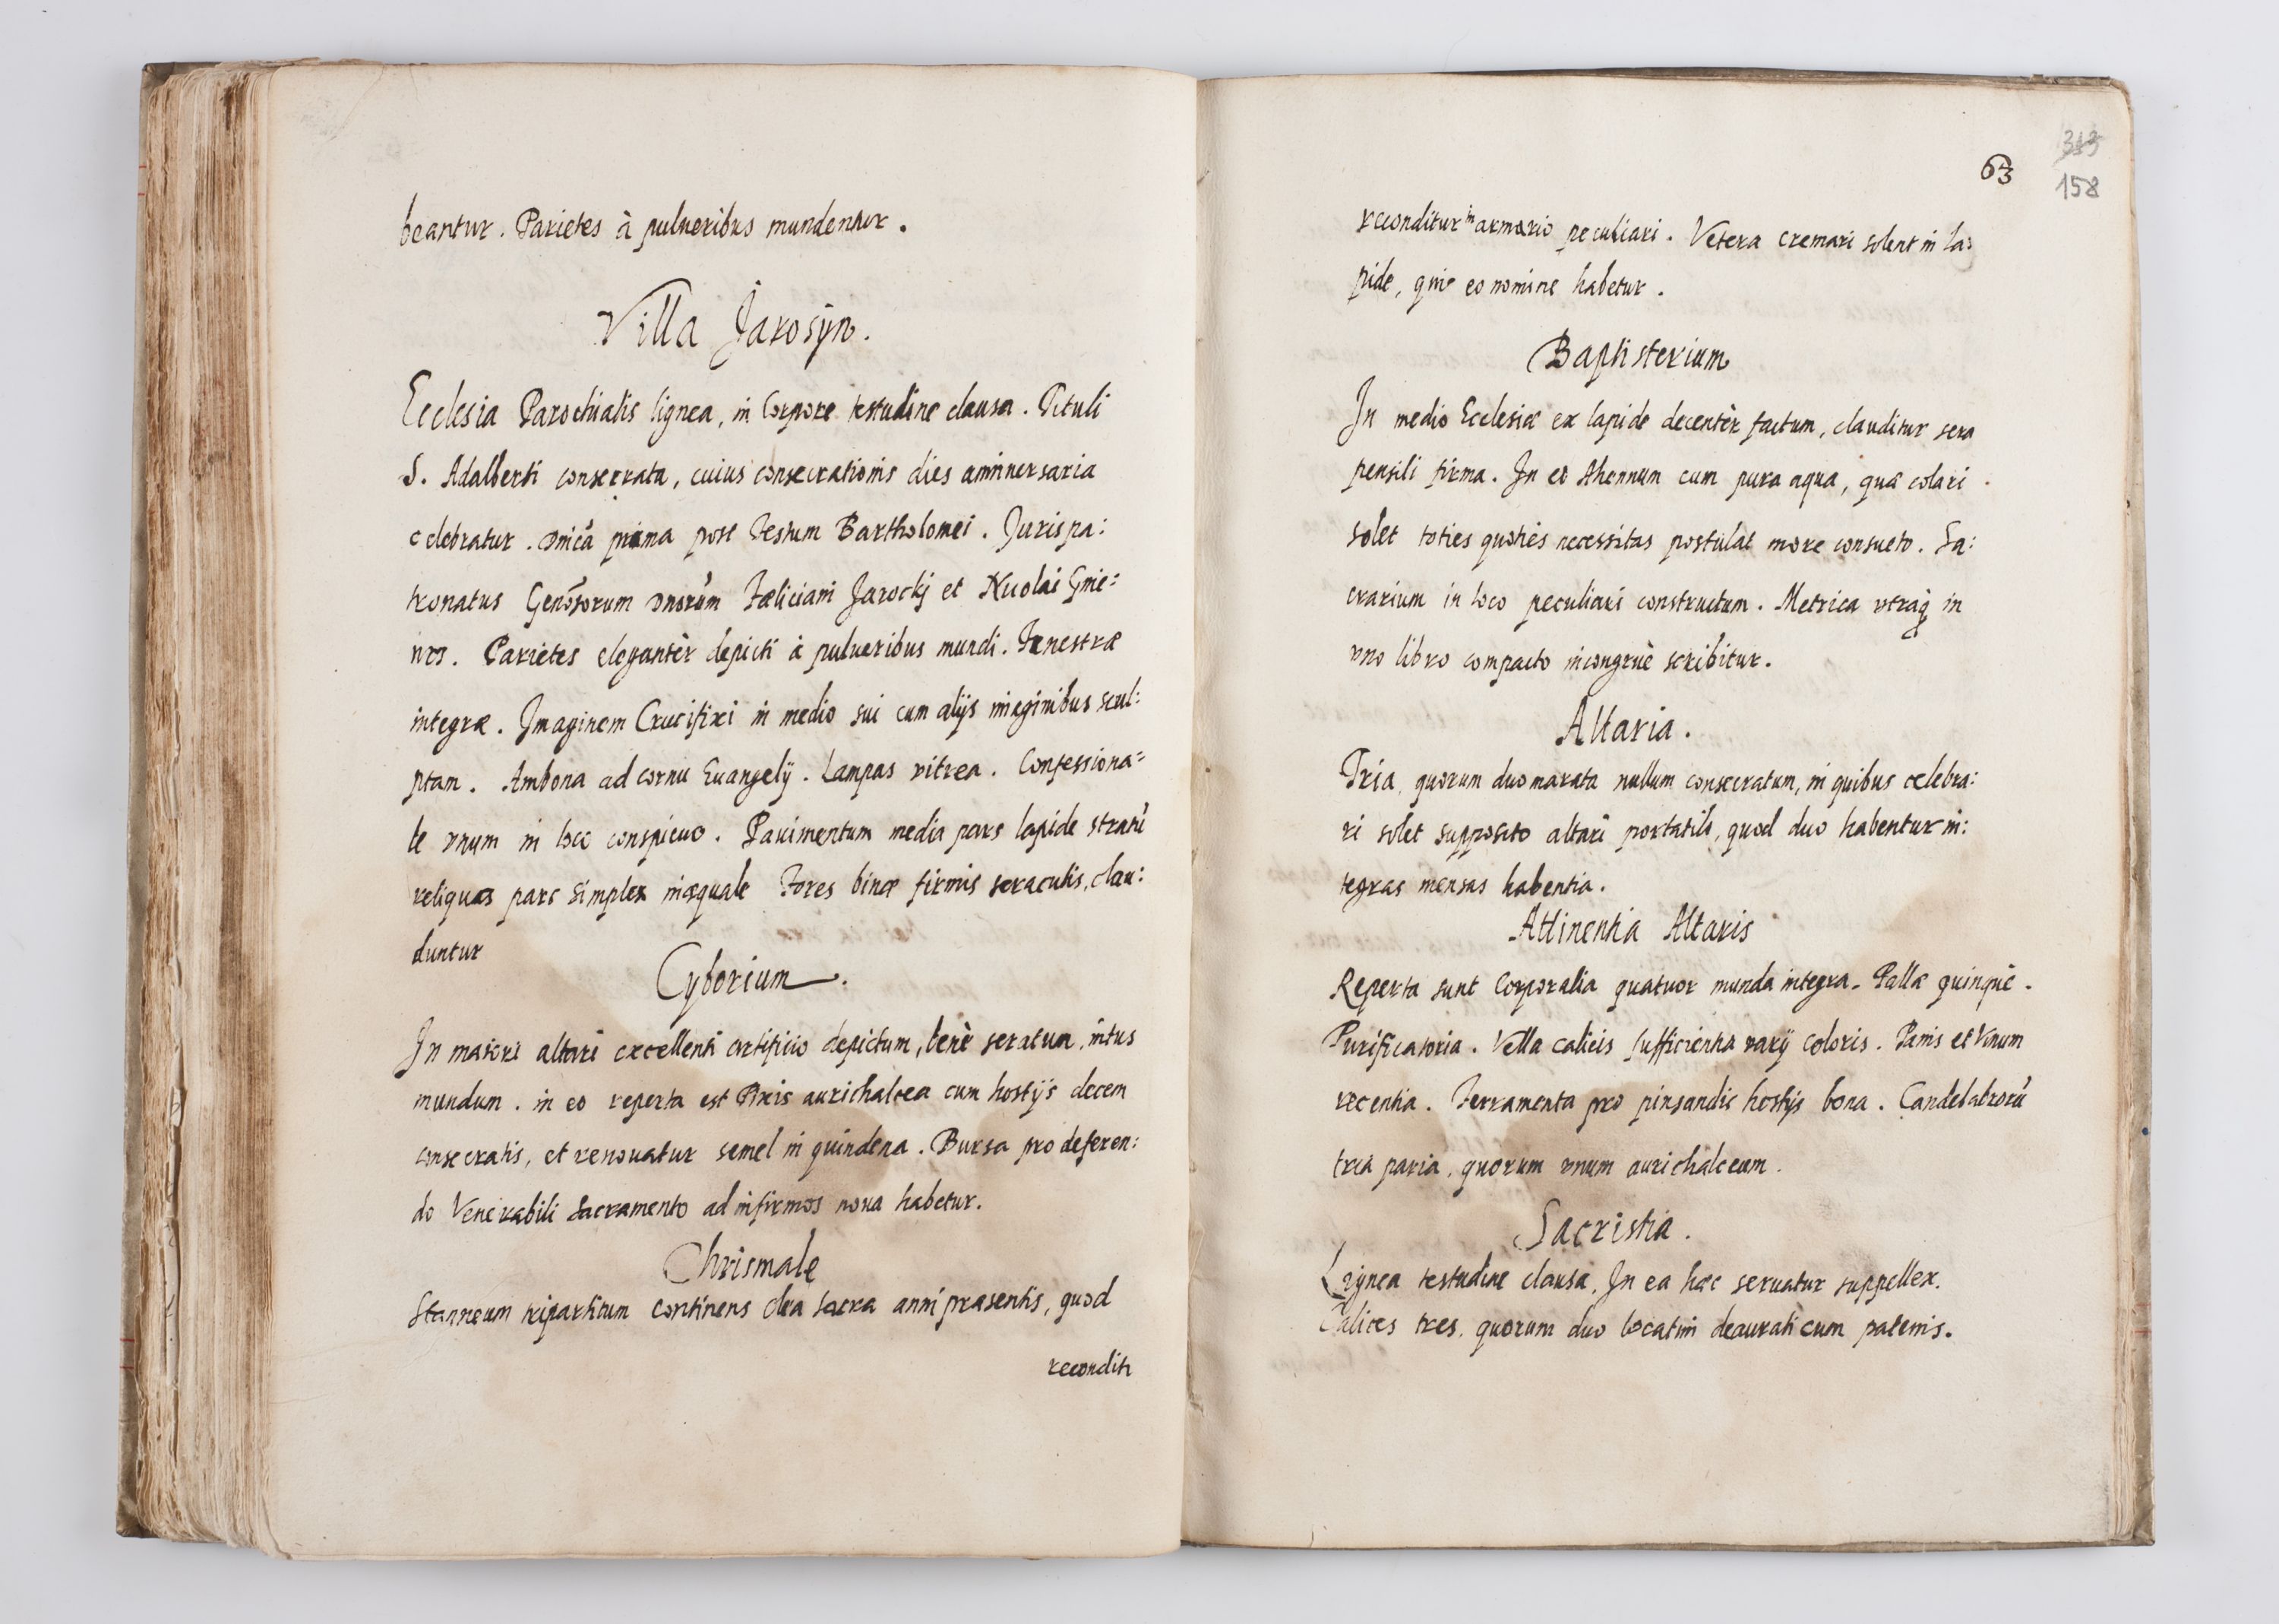 beantur. Parietes à pulueribus mundentur.
Villa Jarosÿn.
Ecclesia Parochialis lignea, in Corpore testudine clausa. Tituli
S. Adalberti consecrata, cuius consecrationis dies anniuersaria
celebratur. Dnicâ prima post Festum Bartholomei. Jurispa:
tronatus Genosorum Dnorum Fæliciani Jarockj et Nicolai Gnie=
wos. Parietes elegantèr depicti à pulueribus mundi. Fenestræ
integræ. Imaginem Crucifixi in medio sui cum alijs imaginibus scul:
ptam. Ambona ad cornu Euangelÿ. Lampas vitrea. Confessiona=
le vnum in loco conspicuo. Pauimentum media pars lapide stratũ
reliquas pars simplex inæquale Fores binæ firmis seraculis, clau:
duntur
Cyborium.
In maiori altari excellenti artificio depictum, benè seratum, intus
mundum. in eo reperta est Pixis aurichalcea cum hostijs decem
consecratis, et renouatur semel in quindena. Bursa pro deferen:
do Venerabili Sacramento ad infirmos noua habetur.
Chrismale
Stanneum tripartitum continens olea sacra anni præsentis, quod
recondit
63
313
158
reconditur in armario peculiari. Vetera cremari solent in la:
pide, qui eo nomine habetur.
Baptisterium
In medio Ecclesiæ ex lapide decentèr factum, clauditur sera
pensili firma. In eo Ahennum cum pura aqua, quæ colari
solet toties quotiès necessitas postulat more consueto. Sa:
crarium in loco peculiari constructum. Metrica vtraq̃ in
vno libro compacto incongruè scribitur.
Altaria.
Tria, quorum duo marata nullum consecratum, in quibus celebra:
ri solet supposito altari portatili, quod duo habentur in:
tegras mensas habentia.
Attinentia Altaris
Reperta sunt Corporalia quatuor munda integra. Pallæ quinque.
Purificatoria. Vella calicis sufficientia varij coloris. Panis et Vinum
recentia. Ferramenta pro pinsandis hostijs bona. Candelabrorũ
tria paria, quorum vnum aurichalceum.
Sacristia.
Lignea testudine clausa, In ea hæc seruatur suppellex.
Calices tres, quorum duo locatim deaurati cum patenis.